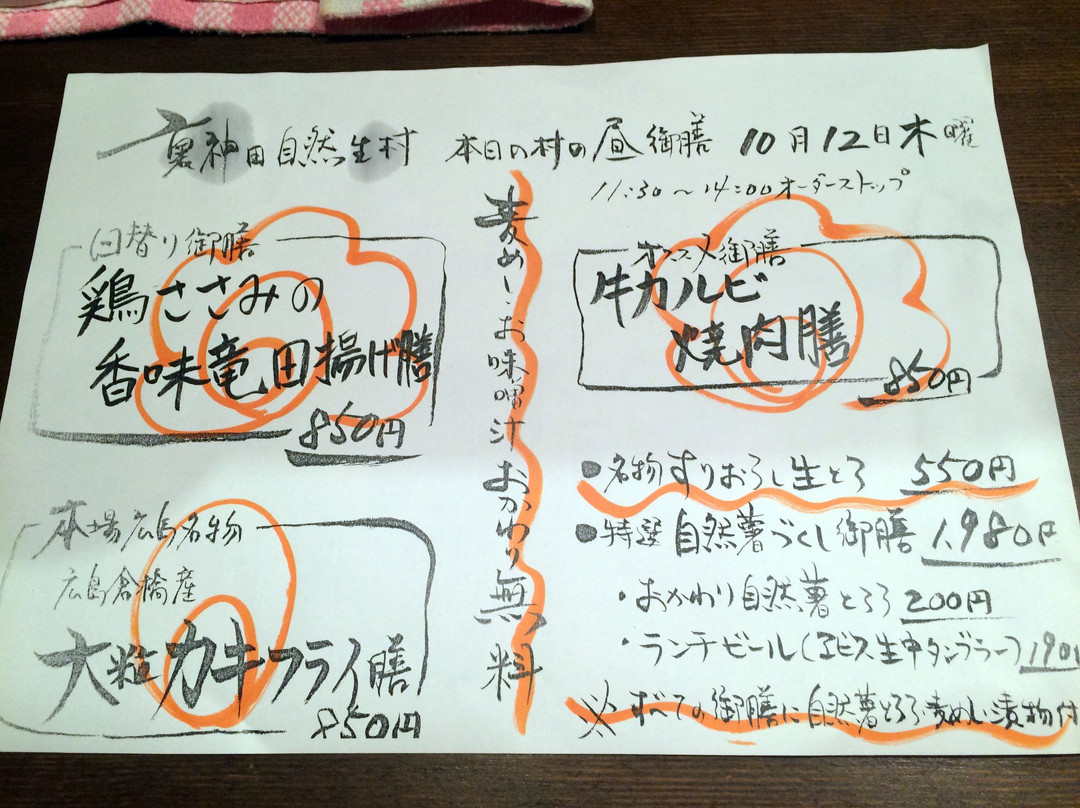 裏神田自然生村 本日の村の昼御膳 10月12日木曜
11:30～14:00オーダーストップ
日替り御膳
鶏ささみの
香味竜田揚げ膳
850円
本場広島名物
広島倉橋産
大粒カキフライ膳
850円
麦めし・お味噌汁おかわり無料
オススメ御膳
牛カルビ
焼肉膳
850円
●名物すりおろし生とろ 550円
●特選自然薯づくし御膳 1,980円
・おかわり自然薯とろろ 200円
・ランチビール(ヱビス生中タンブラー)
※すべての御膳に自然薯とろろ麦めし漬物付